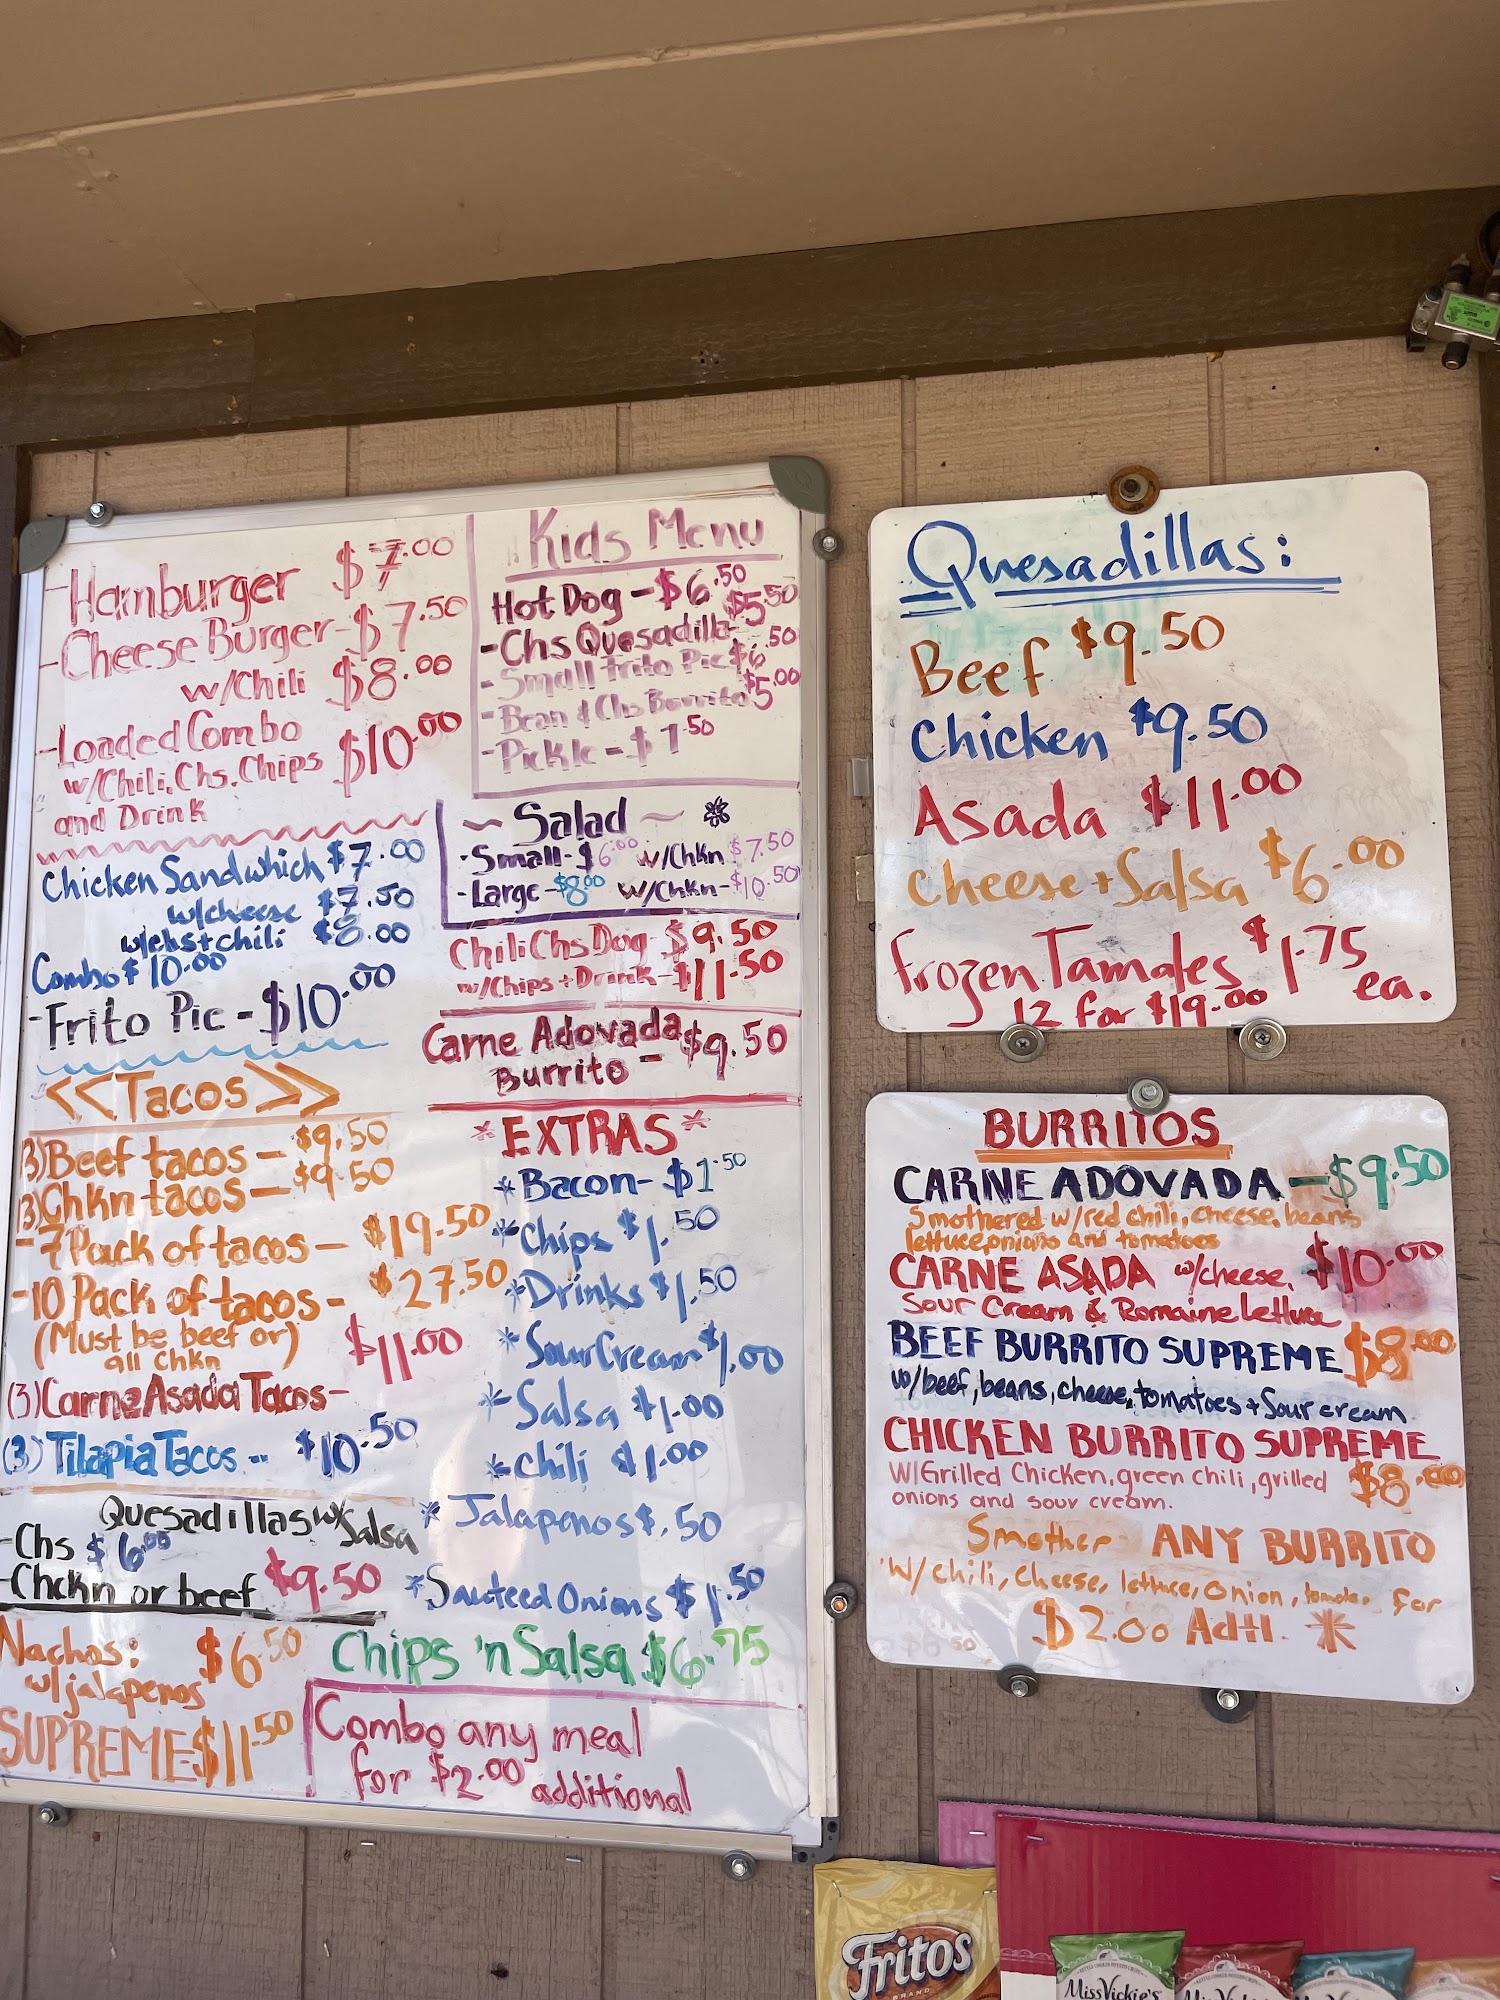 -Hamburger $7.00
-Cheese Burger-$7.50
w/Chili $8.00
-Loaded Combo
w/Chili, Chs, Chips $10.00
and Drink
Chicken Sandwhich $7.00
w/cheese $7.50
w/chs+chili $8.00
Combo $10.00
-Frito Pie-$10.00
<<Tacos>>
(3)Beef tacos-$9.50
(3)Chkn tacos-$9.50
-7 Pack of tacos-$19.50
-10 Pack of tacos-$27.50
(Must be beef or)
all chkn
$11.00
(3)Carne Asada Tacos-
(3)Tilapia Tacos-- $10.50
Quesadillas w/Salsa
-Chs $6.00
-Chckn or beef $9.50
Nachos: $6.50
w/jalapenos
SUPREME $11.50
Kids Menu
Hot Dog-$6.50
-Chs Quesadilla-$5.50
-Small Frito Pie $6.50
-Bean & Chs Burrito $5.00
-Pickle-$1.50
~Salad~ *
-Small-$6.00 w/Chkn $7.50
-Large-$8.00 w/Chkn-$10.50
Chili Chs Dog-$9.50
w/Chips+Drink-$11.50
Carne Adovada $9.50
Burrito-
*EXTRAS*
*Bacon-$1.50
*Chips $1.50
*Drinks $1.50
*Sour Cream $1.00
*Salsa $1.00
*chili $1.00
*Jalapenos $.50
*Sauteed Onions $1.50
Chips 'n Salsa $6.75
Combo any meal
for $2.00 additional
Quesadillas:
Beef $9.50
Chicken $9.50
Asada $11.00
Cheese+Salsa $6.00
Frozen Tamales $1.75 ea.
12 for $19.00
BURRITOS
CARNE ADOVADA-$9.50
Smothered w/red chili, cheese, beans
lettuce, onions and tomatoes
CARNE ASADA w/cheese, $10.00
Sour Cream & Romaine Lettuce
BEEF BURRITO SUPREME $8.00
w/beef, beans, cheese, tomatoes+Sour cream
CHICKEN BURRITO SUPREME
W/Grilled Chicken, green chili, grilled $8.00
onions and sour cream.
Smother ANY BURRITO
w/chili, cheese, lettuce, onion, tomato, for
$2.00 Adtl. *
Fritos
BRAND
MissVickie's